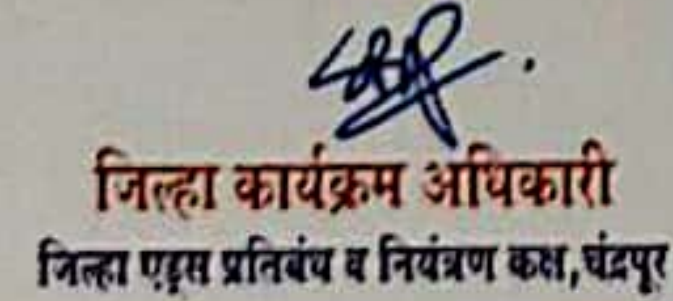 जिल्हा कार्यक्रम अधिकारी
जिल्हा एड्स प्रतिबंध व नियंत्रण कक्ष,चंद्रपूर